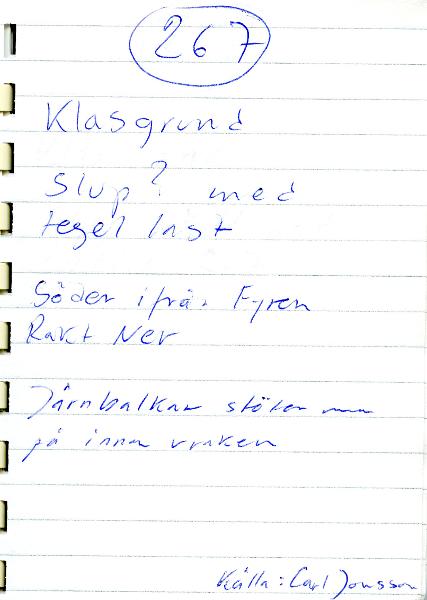 267
Klasgrund
Slup? med
tegel last
Söder ifrån Fyren
Rakt Ner
Järnbalkar stöter man
på innan vraken
Källa: Carl Jonsson